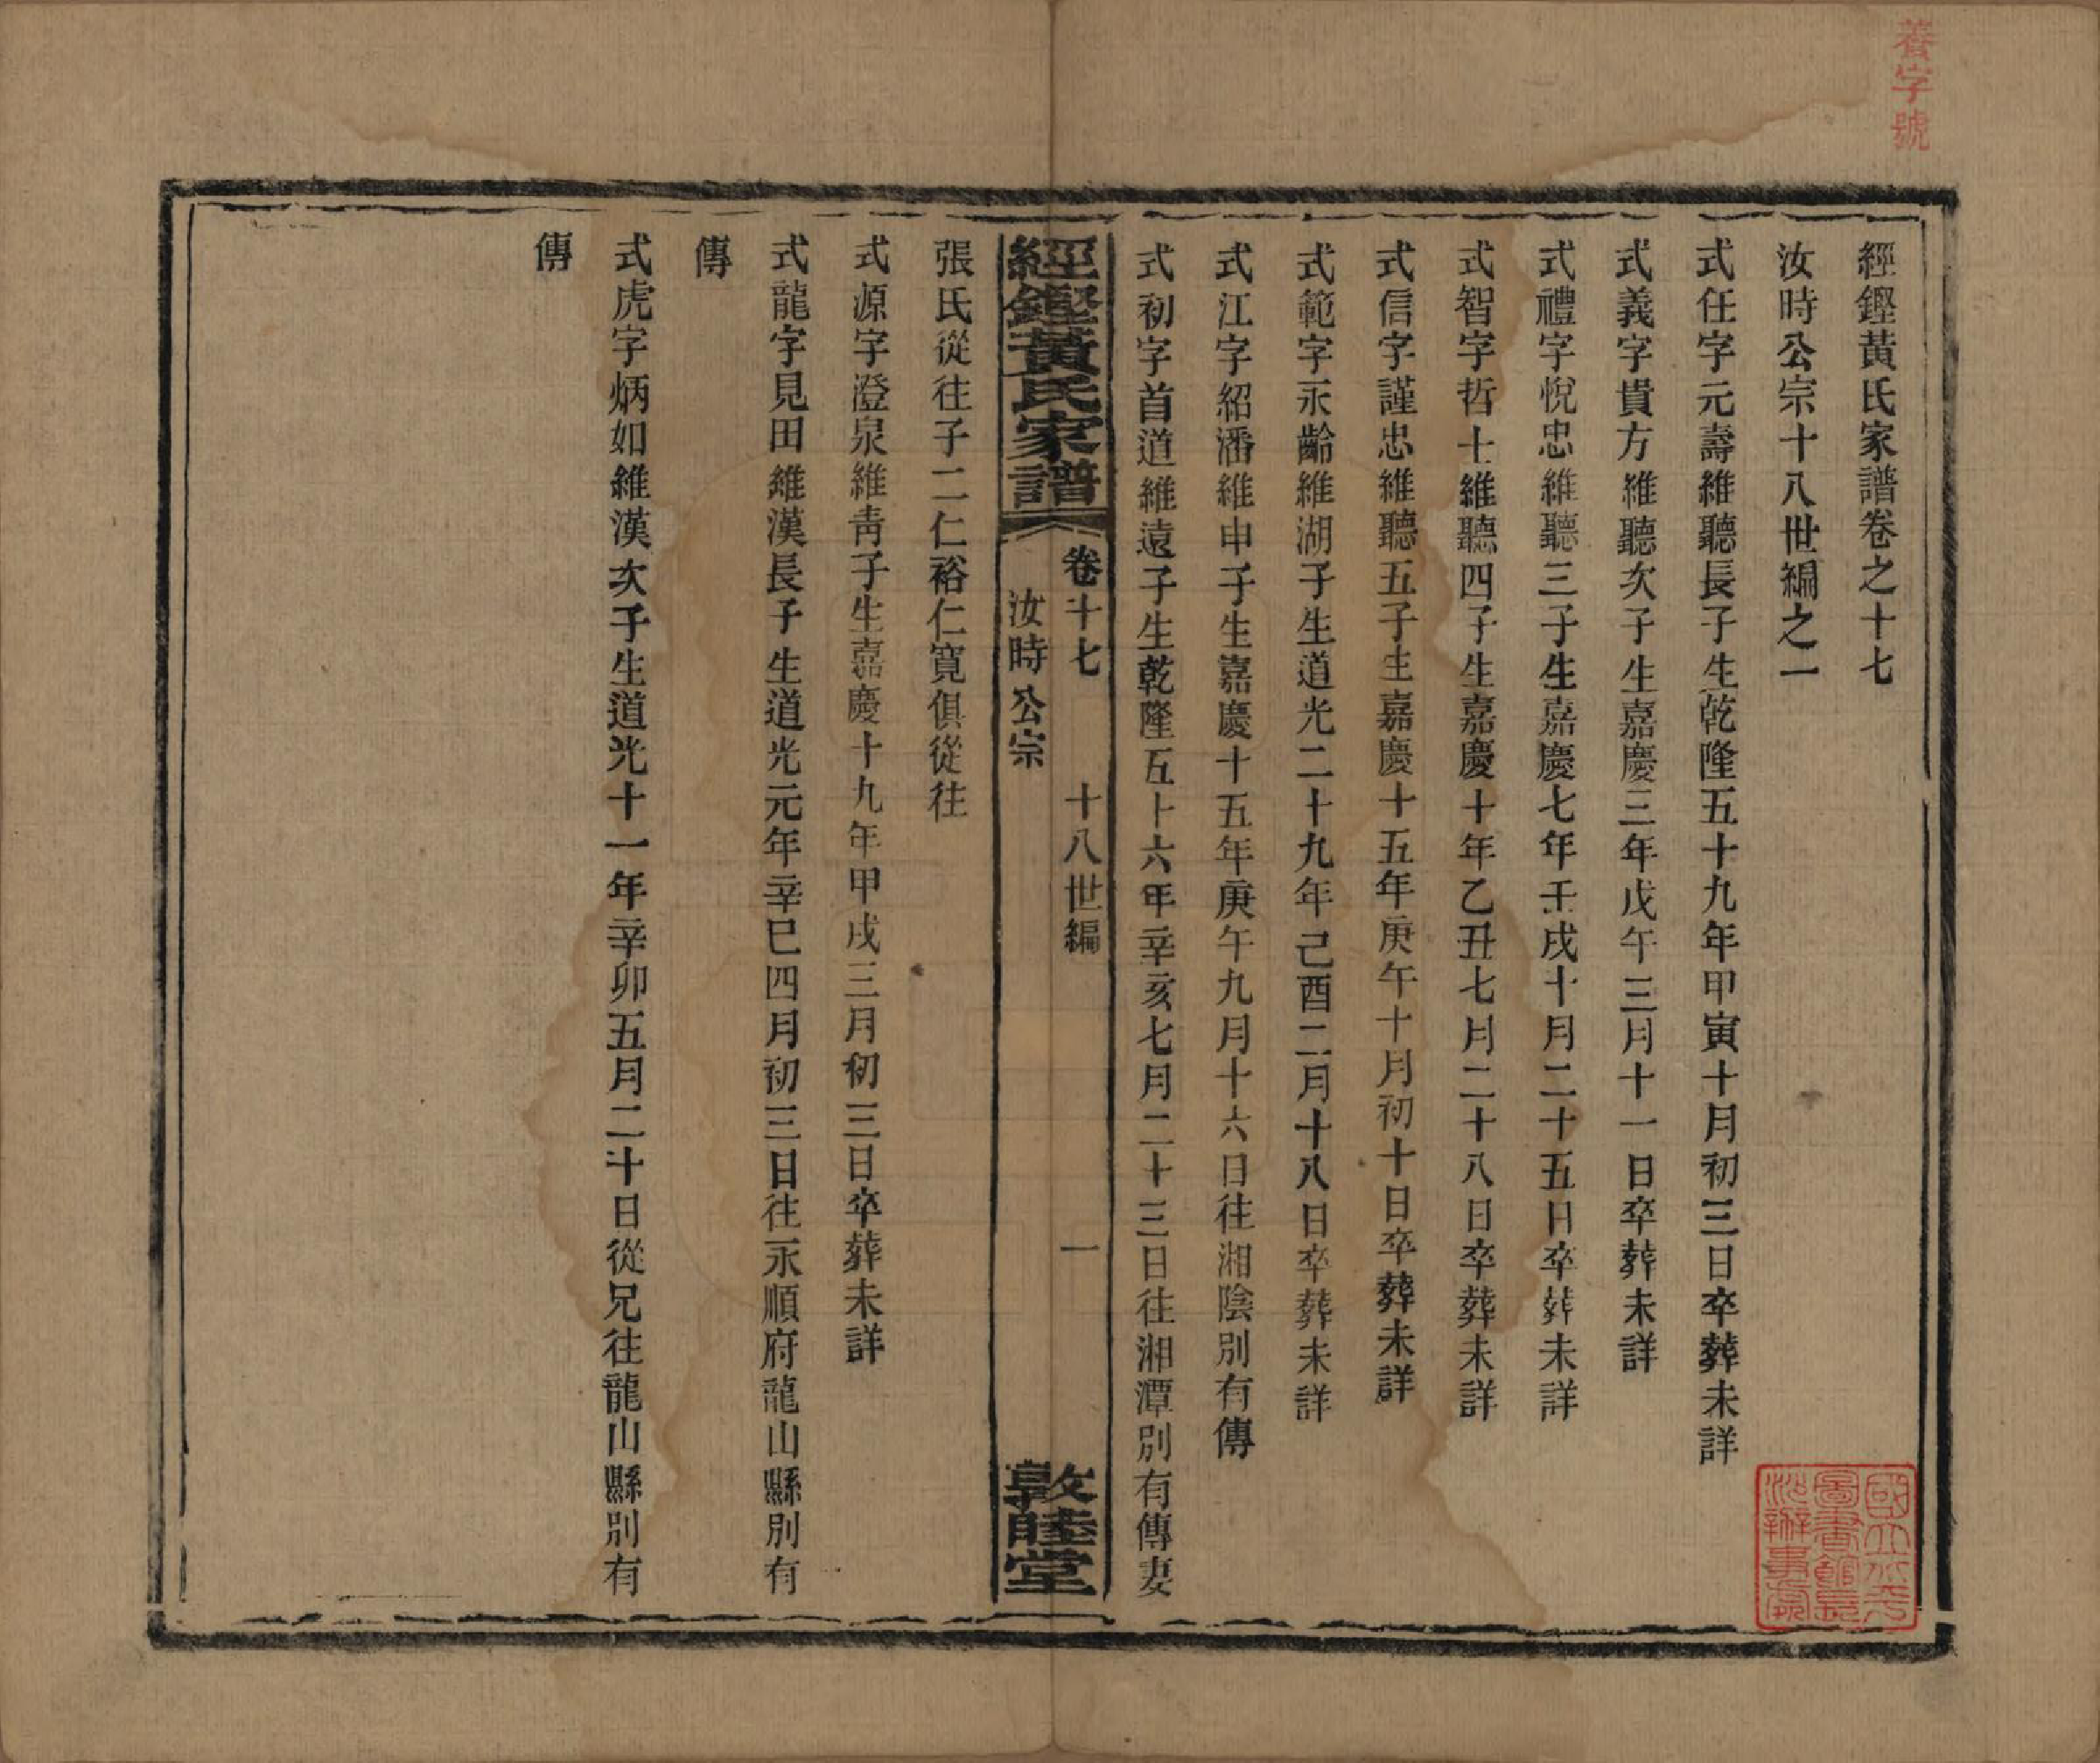 養字號
經鏗黃氏家譜卷之十七
汝時公宗十八世編之一
式任字元壽維聽長子生乾隆五十九年甲寅十月初三日卒葬未詳
式義字貴方維聽次子生嘉慶三年戊午三月十一日卒葬未詳
式禮字悅忠維聽三子生嘉慶七年壬戌十月二十五日卒葬未詳
式智字哲士維聽四子生嘉慶十年乙丑七月二十八日卒葬未詳
式信字謹忠維聽五子生嘉慶十五年庚午十月初十日卒葬未詳
式範字永齡維湖子生道光二十九年己酉二月十八日卒葬未詳
式江字紹潘維申子生嘉慶十五年庚午九月十六日往湘陰別有傳
式初字首道維遠子生乾隆五十六年辛亥七月二十三日往湘潭別有傳妻
經鏗黃氏家譜 卷十七 十八世編 一
汝時公宗 敦睦堂
張氏從往子二仁裕仁寬俱從往
式源字澄泉維靑子生嘉慶十九年甲戌三月初三日卒葬未詳
式龍字見田維漢長子生道光元年辛巳四月初三日往永順府龍山縣別有
傳
式虎字炳如維漢次子生道光十一年辛卯五月二十日從兄往龍山縣別有
傳
國立北平
圖書館長
沙辦事處